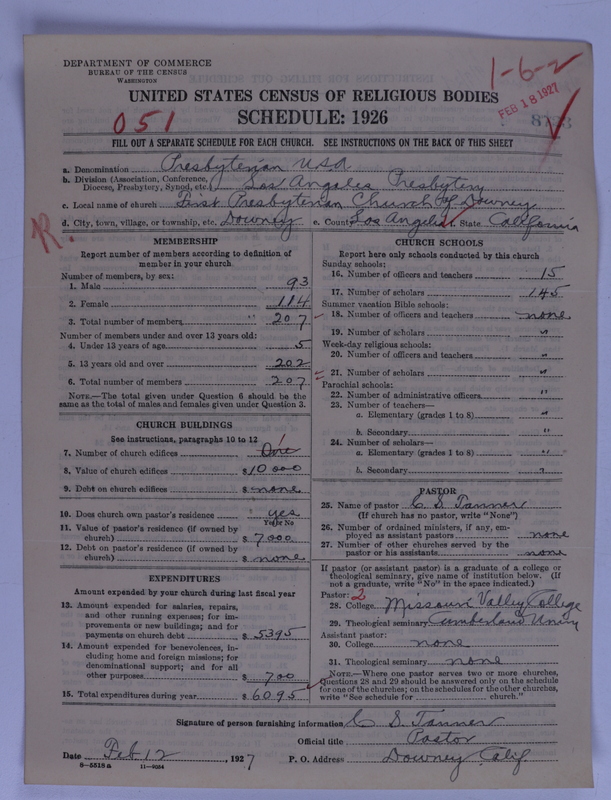 DEPARTMENT OF COMMERCE
BUREAU OF THE CENSUS
WASHINGTON
1-6-2
FEB 18 1927
UNITED STATES CENSUS OF RELIGIOUS BODIES
051
SCHEDULE: 1926
FILL OUT A SEPARATE SCHEDULE FOR EACH CHURCH. SEE INSTRUCTIONS ON THE BACK OF THIS SHEET
a. Denomination Presbyterian USA
b. Division (Association, Conference, Diocese, Presbytery, Synod, etc.) Los Angeles Presbytery
c. Local name of church First Presbyterian Church of Downey
d. City, town, village, or township, etc. Downey e. County Los Angeles f. State California
R.
MEMBERSHIP
Report number of members according to definition of
member in your church
Number of members, by sex:
1. Male 93
2. Female 114
3. Total number of members 207
Number of members under and over 13 years old:
4. Under 13 years of age 5
5. 13 years old and over 202
6. Total number of members 207
NOTE.—The total given under Question 6 should be the
same as the total of males and females given under Question 3.
CHURCH BUILDINGS
See instructions, paragraphs 10 to 12
7. Number of church edifices One
8. Value of church edifices $10000
9. Debt on church edifices $ none
10. Does church own pastor's residence yes
Yes or No
11. Value of pastor's residence (if owned by
church) $ 7000
12. Debt on pastor's residence (if owned by
church) $ none
EXPENDITURES
Amount expended by your church during last fiscal year
13. Amount expended for salaries, repairs,
and other running expenses; for im-
provements or new buildings; and for
payments on church debt $ 5395
14. Amount expended for benevolences, in-
cluding home and foreign missions; for
denominational support; and for all
other purposes $ 700
15. Total expenditures during year $ 6095
CHURCH SCHOOLS
Report here only schools conducted by this church
Sunday schools:
16. Number of officers and teachers 15
17. Number of scholars 145
Summer vacation Bible schools:
18. Number of officers and teachers none
19. Number of scholars "
Week-day religious schools:
20. Number of officers and teachers "
21. Number of scholars "
Parochial schools:
22. Number of administrative officers "
23. Number of teachers—
a. Elementary (grades 1 to 8) "
b. Secondary "
24. Number of scholars—
a. Elementary (grades 1 to 8) "
b. Secondary "
PASTOR
25. Name of pastor C S. Tanner
(If church has no pastor, write "None")
26. Number of ordained ministers, if any, em-
ployed as assistant pastors none
27. Number of other churches served by the
pastor or his assistants none
If pastor (or assistant pastor) is a graduate of a college or
theological seminary, give name of institution below. (If
not a graduate, write "No" in the space indicated.)
Pastor: 2
28. College Missouri Valley College
29. Theological seminary Cumberland Univ
Assistant pastor:
30. College none
31. Theological seminary none
NOTE.—Where one pastor serves two or more churches,
Questions 28 and 29 should be answered only on the schedule
for one of the churches; on the schedules for the other churches,
write "See schedule for church."
Signature of person furnishing information C S Tanner
Official title Pastor
Date Feb 12, 1927 P. O. Address Downey Calif.
8-5518a 11-9324